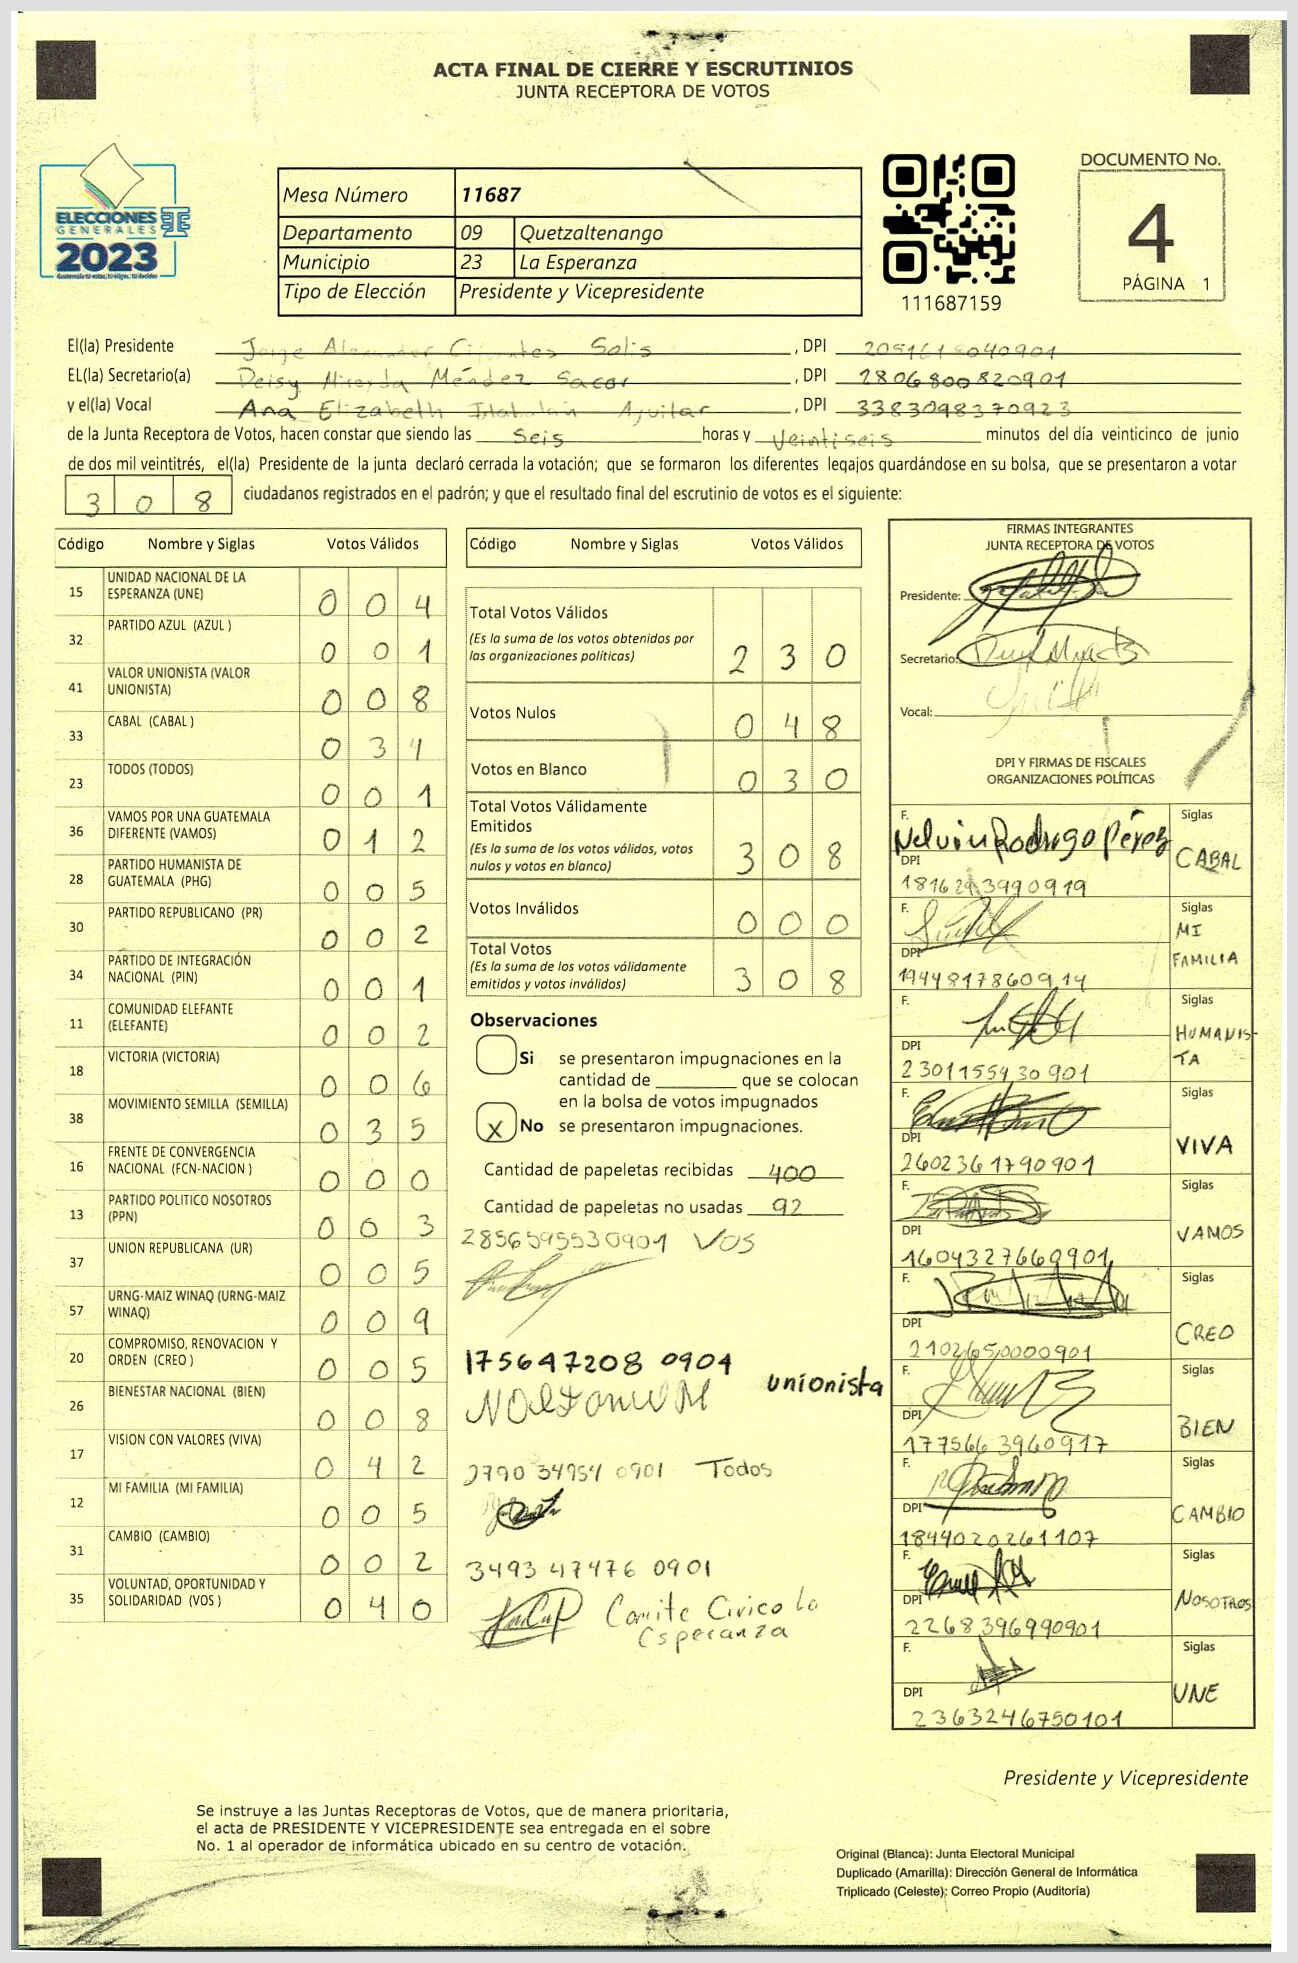 ACTA FINAL DE CIERRE Y ESCRUTINIOS
JUNTA RECEPTORA DE VOTOS
ELECCIONES
GENERALES
2023
Mesa Número 11687
Departamento 09 Quetzaltenango
Municipio 23 La Esperanza
Tipo de Elección Presidente y Vicepresidente
111687159
DOCUMENTO No.
4
PÁGINA 1
El(la) Presidente Jorge Alexander Cifuentes Solis , DPI
EL(la) Secretario(a) Deisy Miranda Méndez Sacor , DPI 2806800820901
y el(la) Vocal Ana Elizabeth Aguilar , DPI 3383098370923
de la Junta Receptora de Votos, hacen constar que siendo las Seis horas y Veintiseis minutos del día veinticinco de junio
de dos mil veintitrés, el(la) Presidente de la junta declaró cerrada la votación; que se formaron los diferentes legajos guardándose en su bolsa, que se presentaron a votar
308 ciudadanos registrados en el padrón; y que el resultado final del escrutinio de votos es el siguiente:
Código Nombre y Siglas Votos Válidos
15 UNIDAD NACIONAL DE LA ESPERANZA (UNE) 0 0 4
32 PARTIDO AZUL (AZUL ) 0 0 1
41 VALOR UNIONISTA (VALOR UNIONISTA) 0 0 8
33 CABAL (CABAL ) 0 3 4
23 TODOS (TODOS) 0 0 1
36 VAMOS POR UNA GUATEMALA DIFERENTE (VAMOS) 0 1 2
28 PARTIDO HUMANISTA DE GUATEMALA (PHG) 0 0 5
30 PARTIDO REPUBLICANO (PR) 0 0 2
34 PARTIDO DE INTEGRACIÓN NACIONAL (PIN) 0 0 1
11 COMUNIDAD ELEFANTE (ELEFANTE) 0 0 2
18 VICTORIA (VICTORIA) 0 0 6
38 MOVIMIENTO SEMILLA (SEMILLA) 0 3 5
16 FRENTE DE CONVERGENCIA NACIONAL (FCN-NACION ) 0 0 0
13 PARTIDO POLITICO NOSOTROS (PPN) 0 0 3
37 UNION REPUBLICANA (UR) 0 0 5
57 URNG-MAIZ WINAQ (URNG-MAIZ WINAQ) 0 0 9
20 COMPROMISO, RENOVACION Y ORDEN (CREO ) 0 0 5
26 BIENESTAR NACIONAL (BIEN) 0 0 8
17 VISION CON VALORES (VIVA) 0 4 2
12 MI FAMILIA (MI FAMILIA) 0 0 5
31 CAMBIO (CAMBIO) 0 0 2
35 VOLUNTAD, OPORTUNIDAD Y SOLIDARIDAD (VOS ) 0 4 0
Código Nombre y Siglas Votos Válidos
Total Votos Válidos 2 3 0
(Es la suma de los votos obtenidos por
las organizaciones políticas)
Votos Nulos 0 4 8
Votos en Blanco 0 3 0
Total Votos Válidamente
Emitidos 3 0 8
(Es la suma de los votos válidos, votos
nulos y votos en blanco)
Votos Inválidos 0 0 0
Total Votos 3 0 8
(Es la suma de los votos válidamente
emitidos y votos inválidos)
Observaciones
Si se presentaron impugnaciones en la
cantidad de ________ que se colocan
en la bolsa de votos impugnados
X No se presentaron impugnaciones.
Cantidad de papeletas recibidas 400
Cantidad de papeletas no usadas 92
2856595530901 VOS
175647208 0904
unionista
2790 34954 0901 Todos
3493 47476 0901
Comite Civico la
Esperanza
FIRMAS INTEGRANTES
JUNTA RECEPTORA DE VOTOS
Presidente:
Secretario:
Vocal:
DPI Y FIRMAS DE FISCALES
ORGANIZACIONES POLÍTICAS
F. Nelvin Rodrigo Pérez Siglas
DPI CABAL
F. Siglas
DPI MI FAMILIA
1944817860914
F. Siglas
DPI HUMANIS-
TA
2301155930901
F. Siglas
DPI VIVA
2602361790901
F. Siglas
DPI VAMOS
1604327660901
F. Siglas
DPI CREO
2102650000901
F. Siglas
DPI BIEN
1775663960917
F. Siglas
DPI CAMBIO
1844020261107
F. Siglas
DPI NOSOTROS
2268396990901
F. Siglas
DPI UNE
2363246750101
Presidente y Vicepresidente
Se instruye a las Juntas Receptoras de Votos, que de manera prioritaria,
el acta de PRESIDENTE Y VICEPRESIDENTE sea entregada en el sobre
No. 1 al operador de informática ubicado en su centro de votación.
Original (Blanca): Junta Electoral Municipal
Duplicado (Amarilla): Dirección General de Informática
Triplicado (Celeste): Correo Propio (Auditoría)